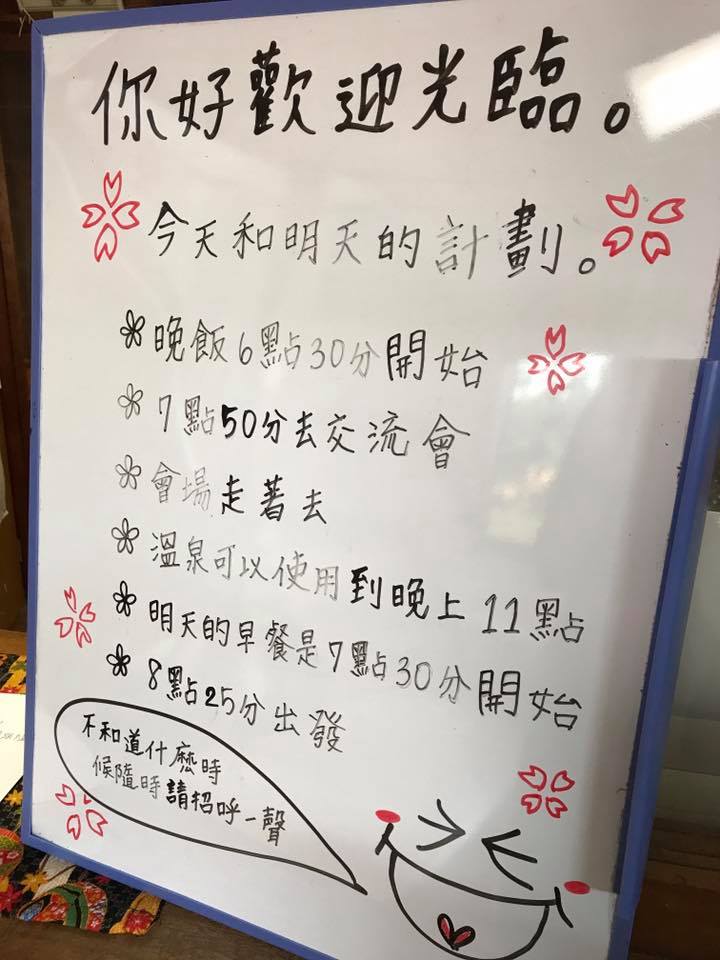 你好歡迎光臨。
今天和明天的計劃。
晚飯6點30分開始
7點50分去交流會
會場走著去
溫泉可以使用到晚上11點
明天的早餐是7點30分開始
8點25分出發
不和道什麼時
候隨時請招呼一聲